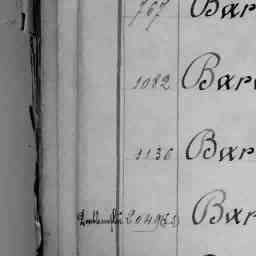 767 Bar
1082 Bar
1136 Bar
2049 Bar